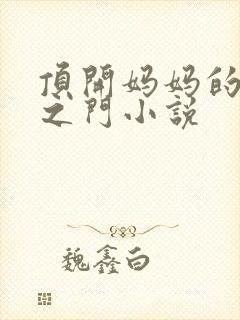 頂開妈妈的
之门小説
魏鑫白